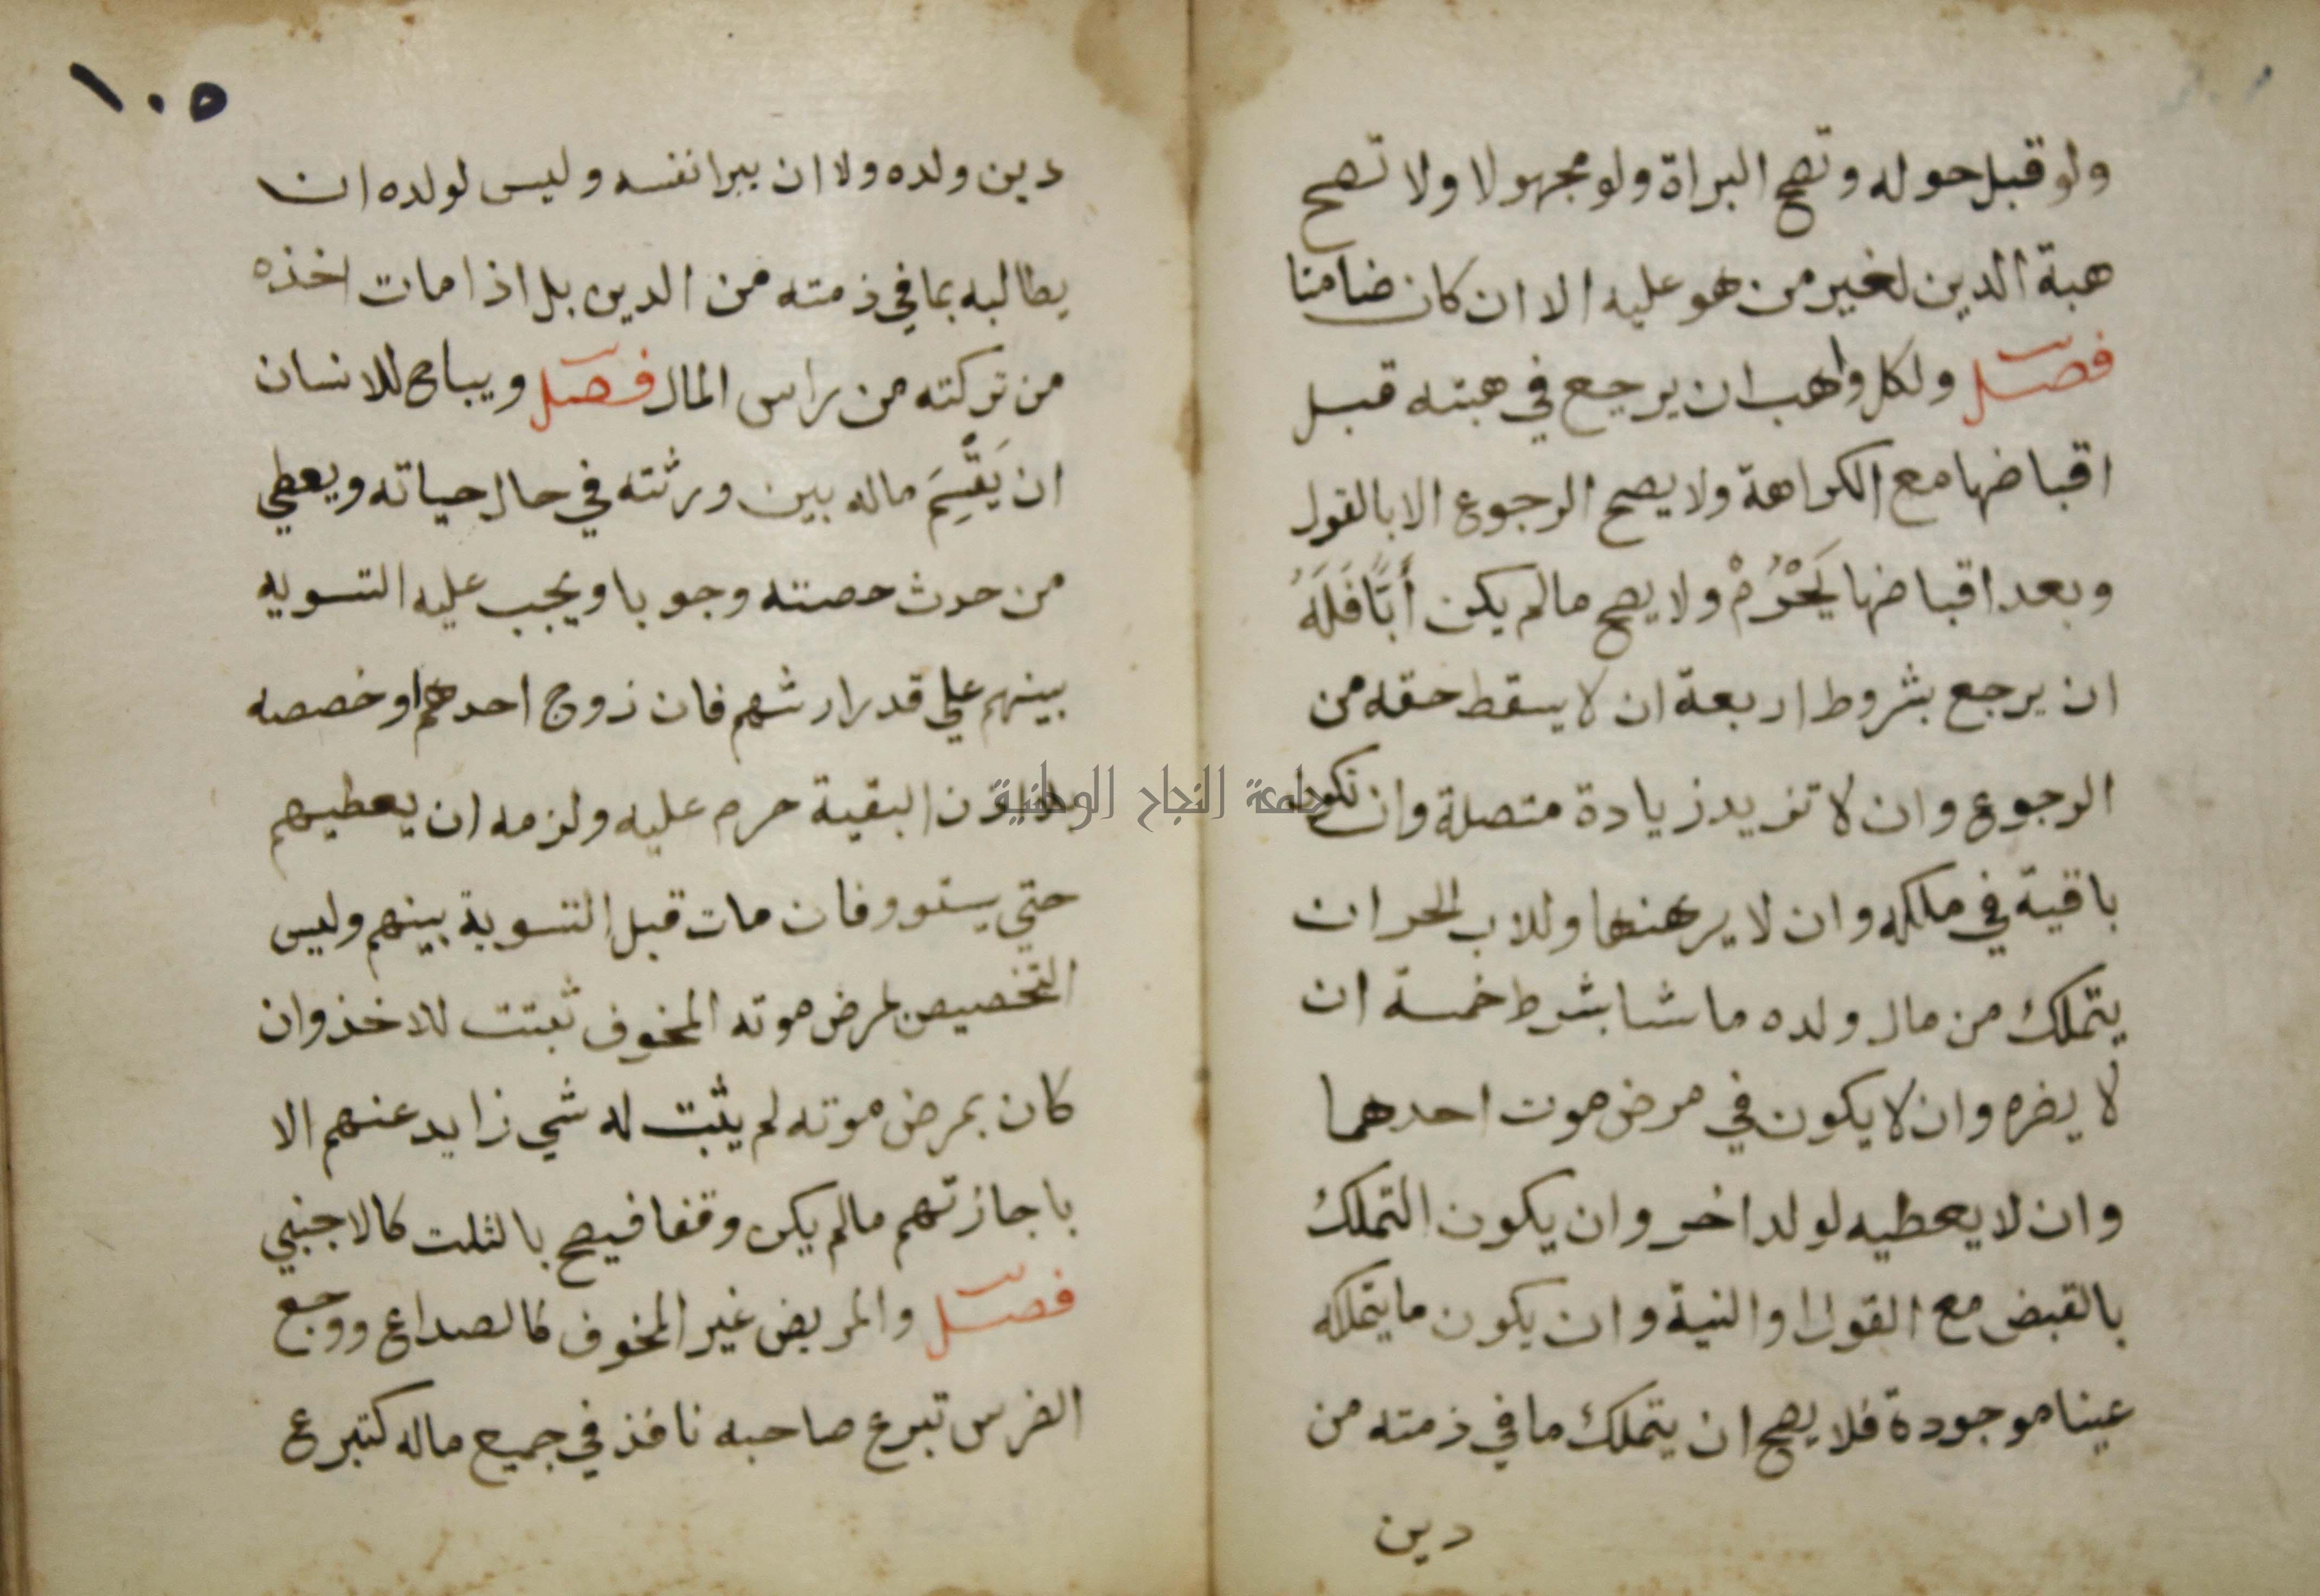 ولو قبل حوله وتصح البراة ولو مجهولا ولا تصح
هبة الدين لغير من هو عليه الا ان كان ضامنا
فصل ولكل واهب ان يرجع في هبته قبل
اقباضها مع الكراهة ولا يصح الرجوع الا بالقول
وبعد اقباضها يَحْرُمْ ولا يصح مالم يكن أَبًا فَلَهُ
ان يرجع بشروط اربعة ان لا يسقط حقه من
الرجوع وان لا تزيد زيادة متصلة وان تكون
باقية في ملكه وان لا يرهنها وللاب الحر ان
يتملك من مال ولده ما شا بشرط خمسة ان
لا يضره وان لا يكون في مرض موت احدهما
وان لا يعطيه لولد اخر وان يكون التملك
بالقبض مع القول او النية وان يكون ما يتملكه
عينا موجودة فلا يصح ان يتملك ما في ذمته من
دين
١٠٥
دين ولده ولا ان يبرا نفسه وليس لولده ان
يطالبه بما في ذمته من الدين بل اذا مات اخذه
من تركته من راس المال فصل ويباح للانسان
ان يَقْسِمَ ماله بين ورثته في حال حياته ويعطي
من حدث حصته وجوبا ويجب عليه التسويه
بينهم علي قدر ارثهم فان زوج احدهم او خصصه
بلا اذن البقية حرم عليه ولزمه ان يعطيهم
حتي يستوو فان مات قبل التسوية بينهم وليس
التخصيص لمرض موته المخوف ثبتت للاخذ وان
كان بمرض موته لم يثبت له شي زايد عنهم الا
باجازتهم مالم يكن وقفا فيصح بالثلث كالاجنبي
فصل والمريض غير المخوف كالصداع ووجع
الضرس تبرع صاحبه نافذ في جميع ماله كتبرع
جامعة النجاح الوطنية